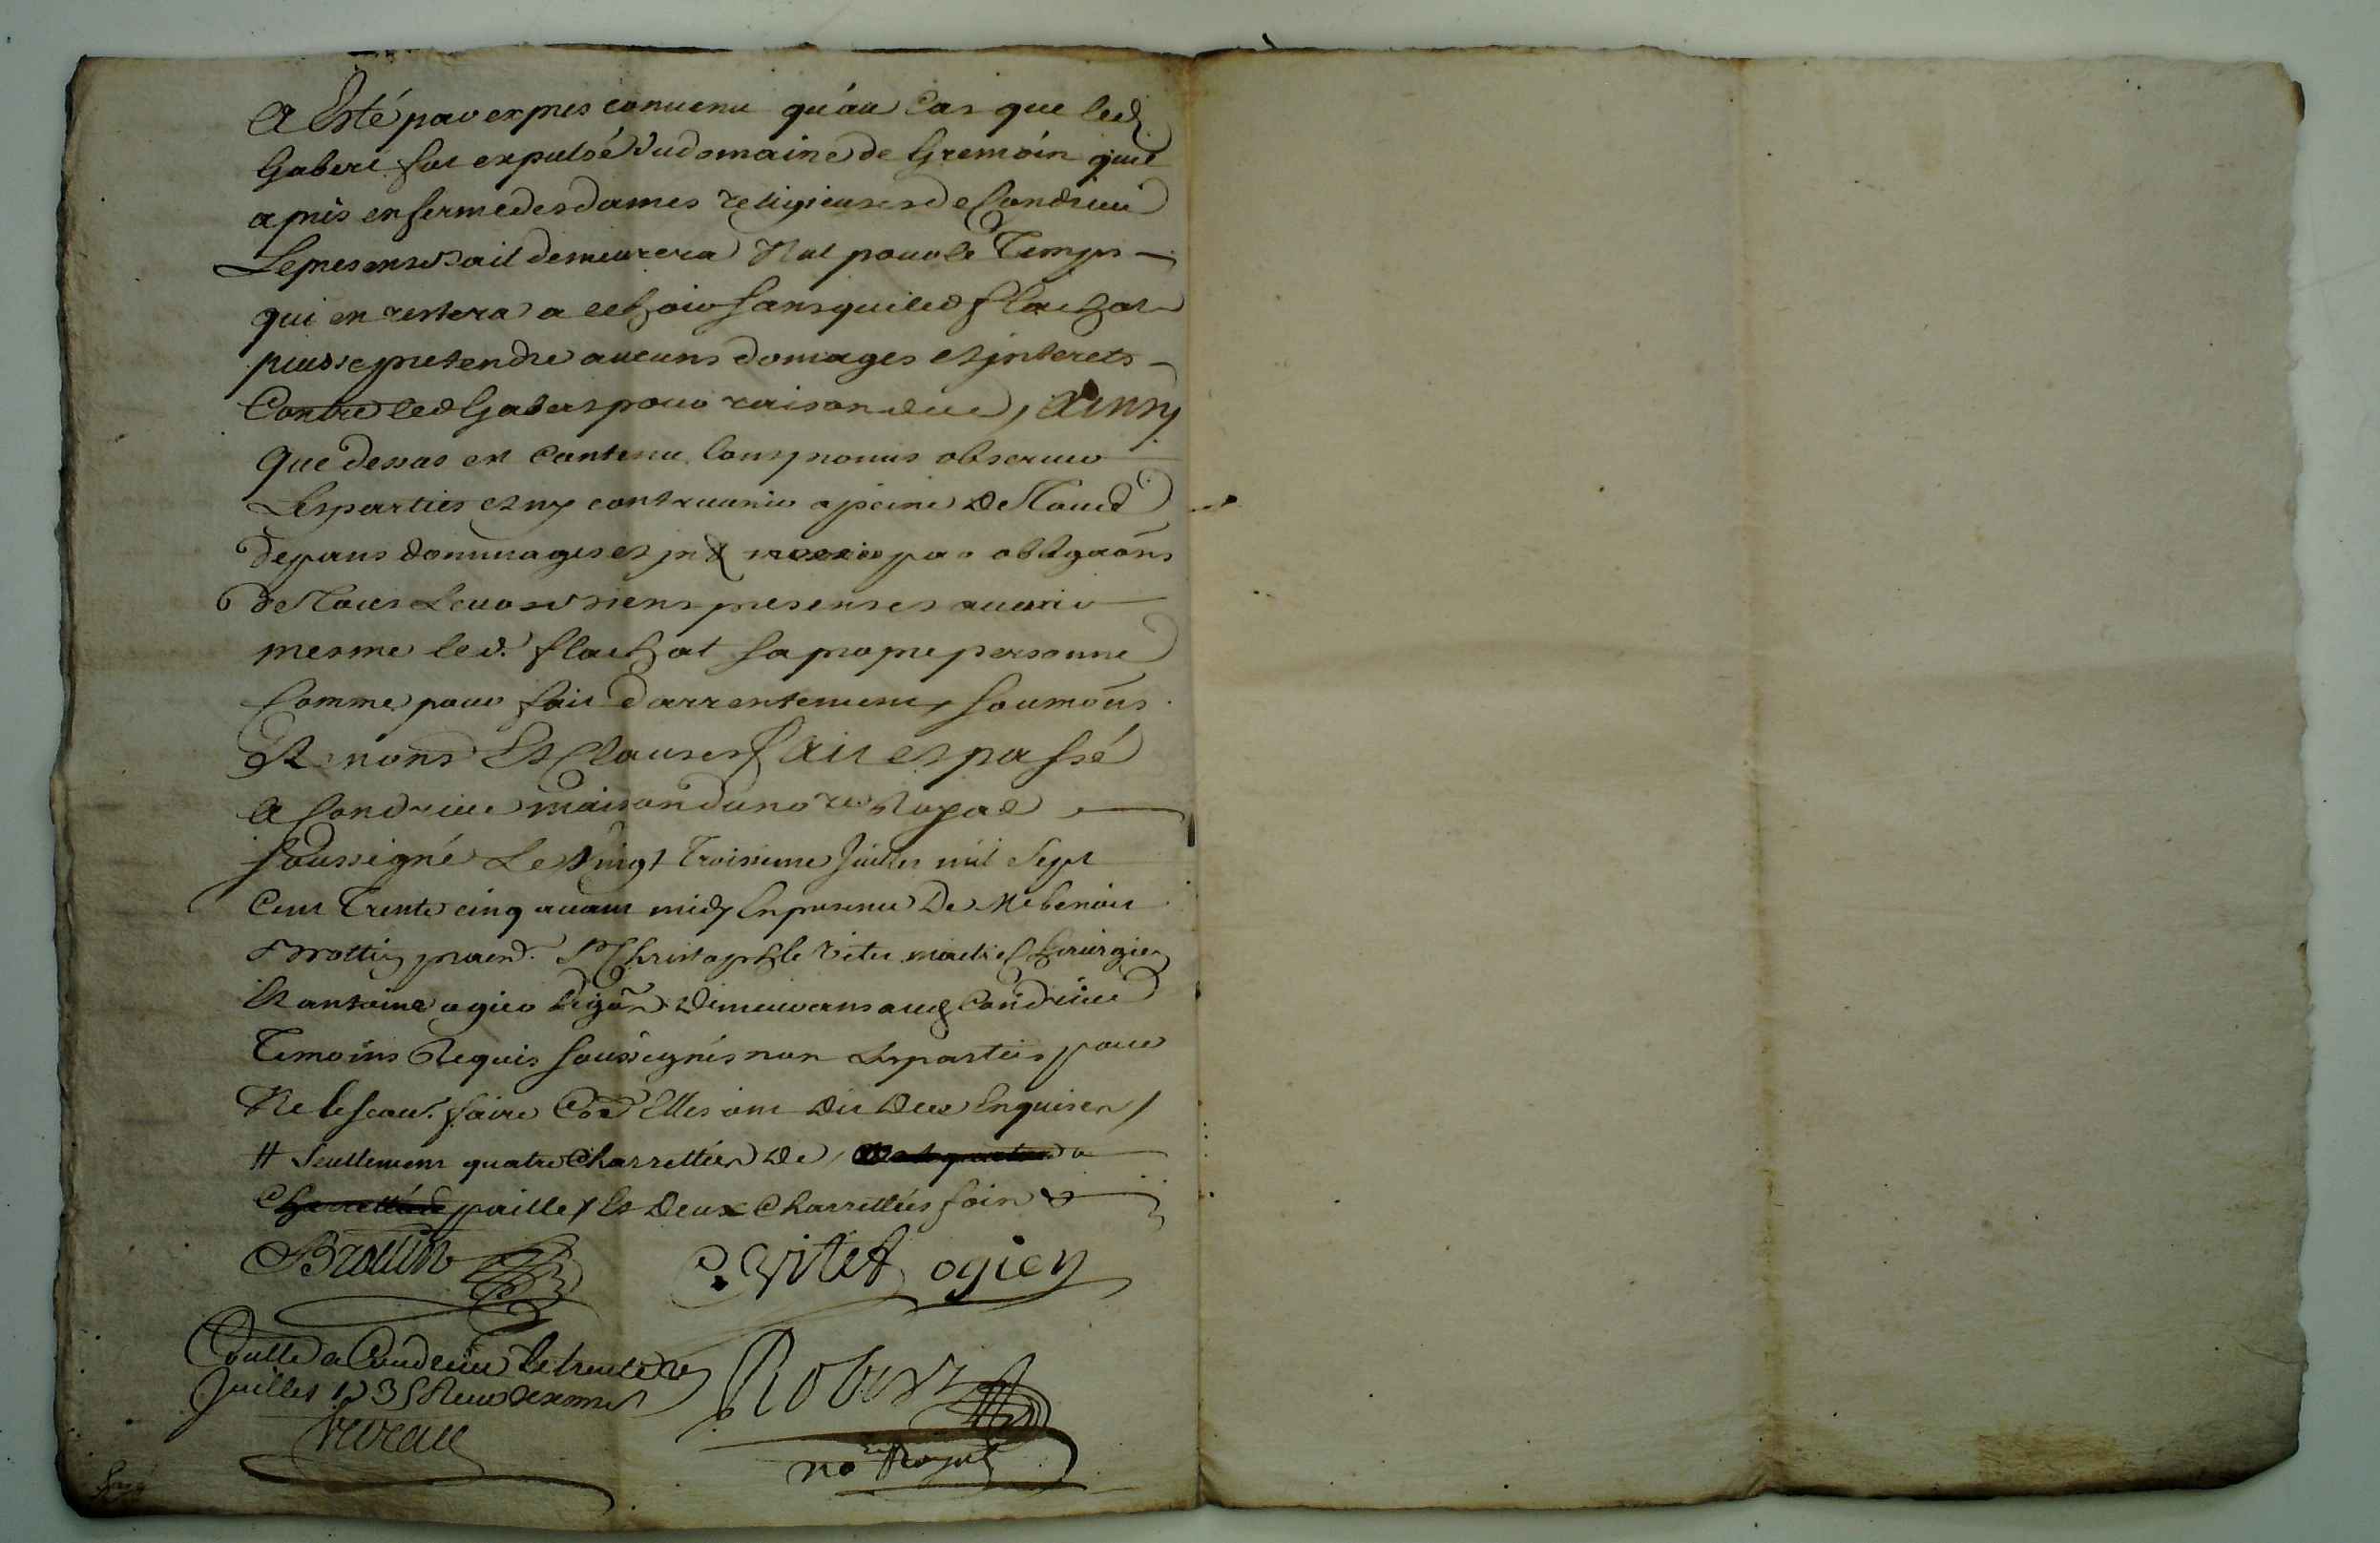 A Esté par expres convenu qu'au Cas que led.
Gabert fut expulsé dudomaine de Gremoin quil
a pris enfermedesdames religieuses de Condrieu
Lepresent bail demeurera Nul pour le Temps
qui en restera a echoir sans que led flachat
puisse pretendre aucuns domages et jnterets
Contre led Gabert pour raison dece, Ainsy
que dessus est contenu Lont promis observer
Lesparties et ny contrevenir apeine De Tous
depans dommages et jnt par obligaons
deTous Leurs biens presents et avenir
mesme led. flachat sa propre personne
Comme pour fait darrentement, soumons
Renons Et Clauses fait et passé
A Condrieu maison duno.re Royal
soussigné Le Vingt Troisieme Juillet mil Sept
Cent Trente cinq avant midy Enpresence De Me benoit
Brottin Sr Christophle Vitet maitre Chirurgien
Et antoine ogier demeurans aud Condrieu
Temoins Requis soussignés non Lesparties pour
Ne le scav. faire Coe Elles ont Dit Deux Enquises /
# seullement quatre Charrettées De
paille / Et Deux Charrettées foin
Brottin
C. Vitet ogier
Conllé a Condrieu le trente
Juillet 1735 Receu
Robert
no.re Royal